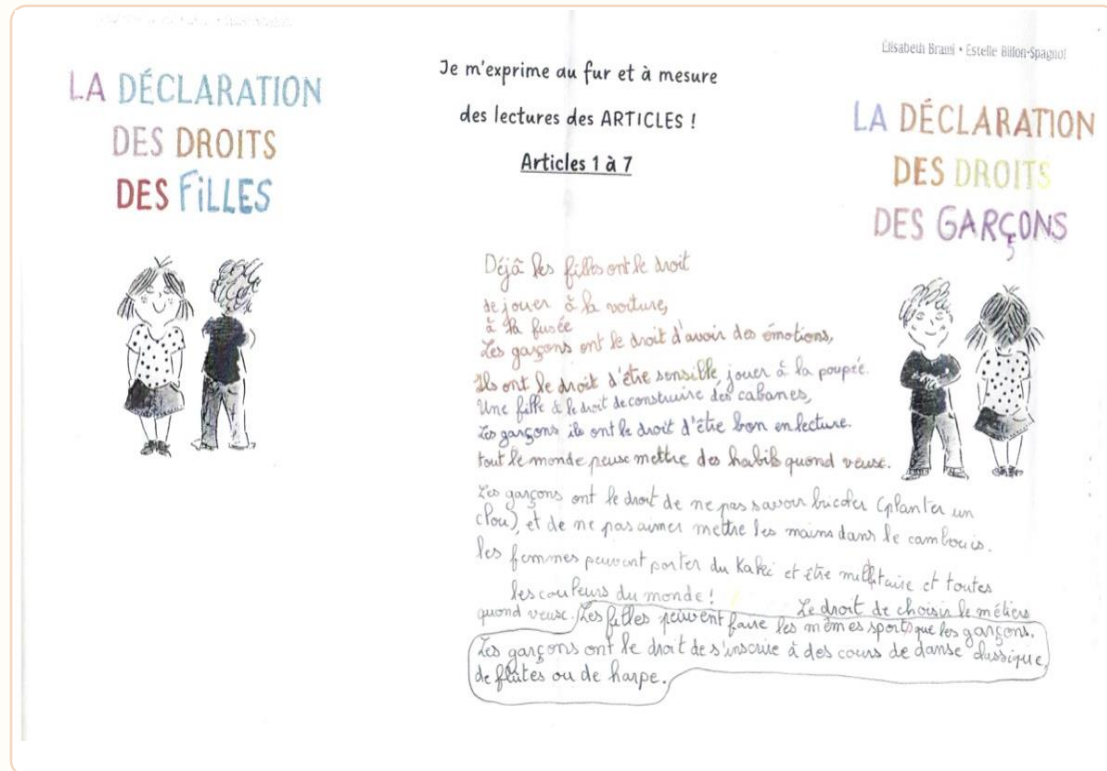 LA DÉCLARATION
DES DROITS
DES FiLLES
Je m'exprime au fur et à mesure
des lectures des ARTICLES !
Articles 1 à 7
Élisabeth Brami • Estelle Billon-Spagnol
LA DÉCLARATION
DES DROITS
DES GARÇONS
Déjà les filles ont le droit
de jouer à la voiture,
à la fusée
Les garçons ont le droit d'avoir des émotions,
Ils ont le droit d'être sensible, jouer à la poupée.
Une fille à le droit de construire des cabanes,
Les garçons ils ont le droit d'être bon en lecture.
tout le monde peuse mettre des habils quond veuse.
Les garçons ont le droit de ne pas savoir bricoler (planter un
clou), et de ne pas aimer mettre les mains dans le cambouis.
les femmes peuvent porter du Kaki et être militaire et toutes
les couleurs du monde !
Le droit de choisir le métiers
quond veuse. Les filles peuvent faire les mêmes sports que les garçons.
Les garçons ont le droit de s'inscrire à des cours de danse classique,
de flûtes ou de harpe.